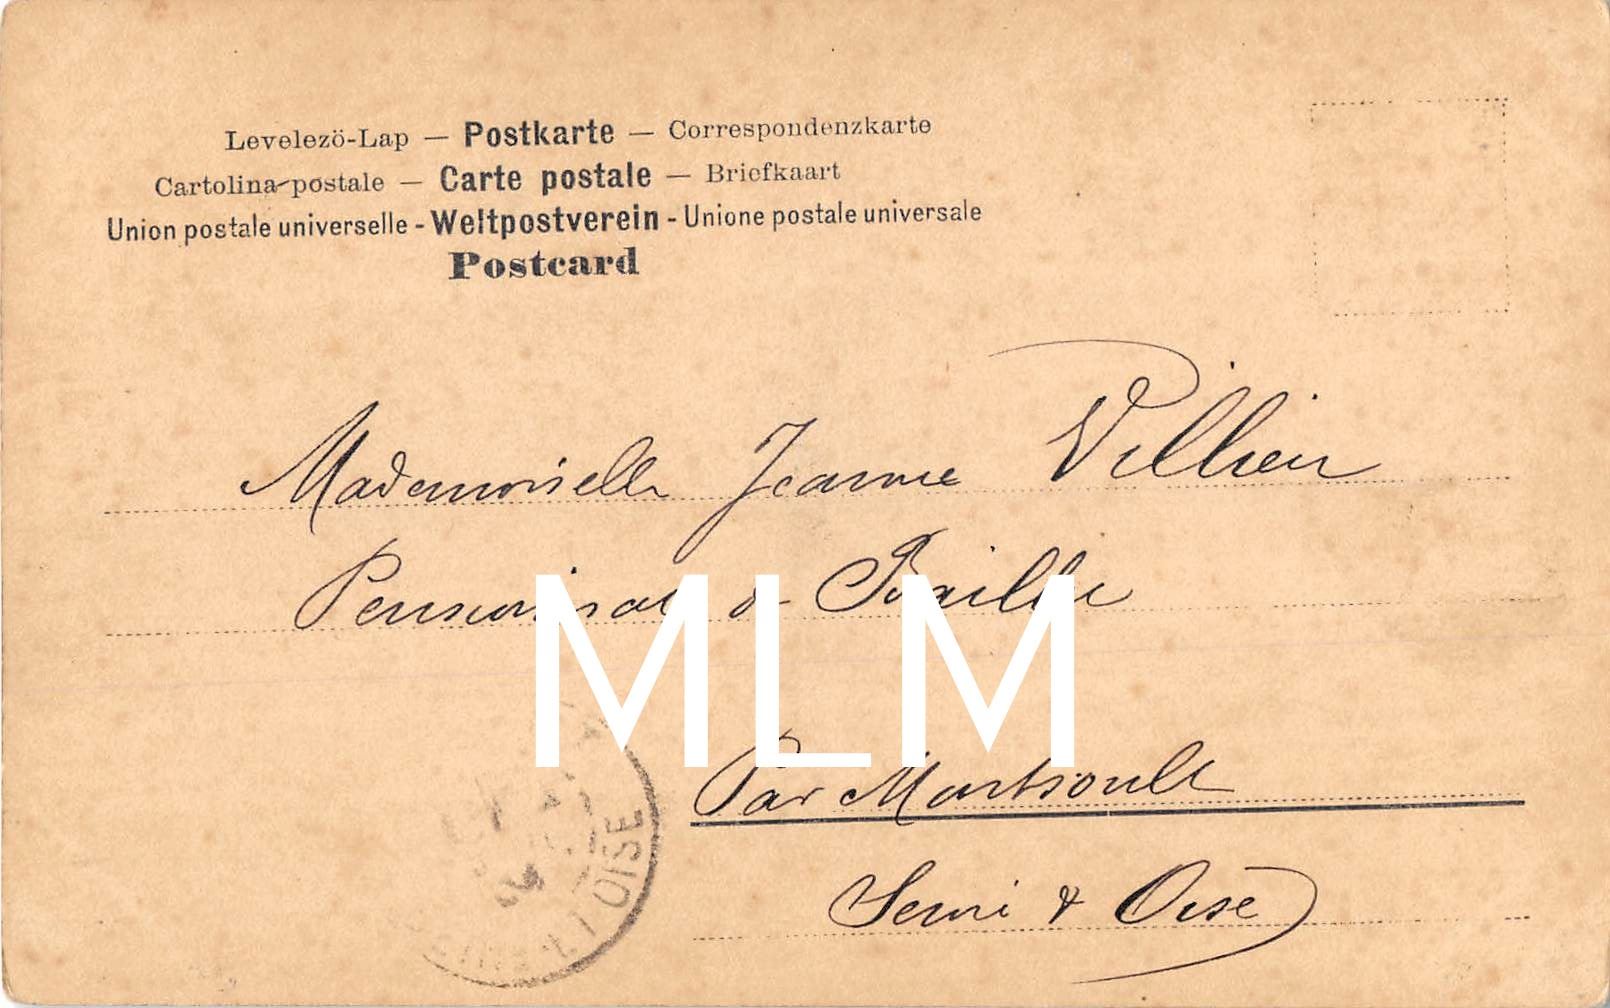 Levelezö-Lap — Postkarte — Correspondenzkarte
Cartolina postale — Carte postale — Briefkaart
Union postale universelle - Weltpostverein - Unione postale universale
Postcard
Mademoiselle Jeanne Villien
Pensionnat de Baillie
MLM
Par Montsoult
Seine & Oise
OISE